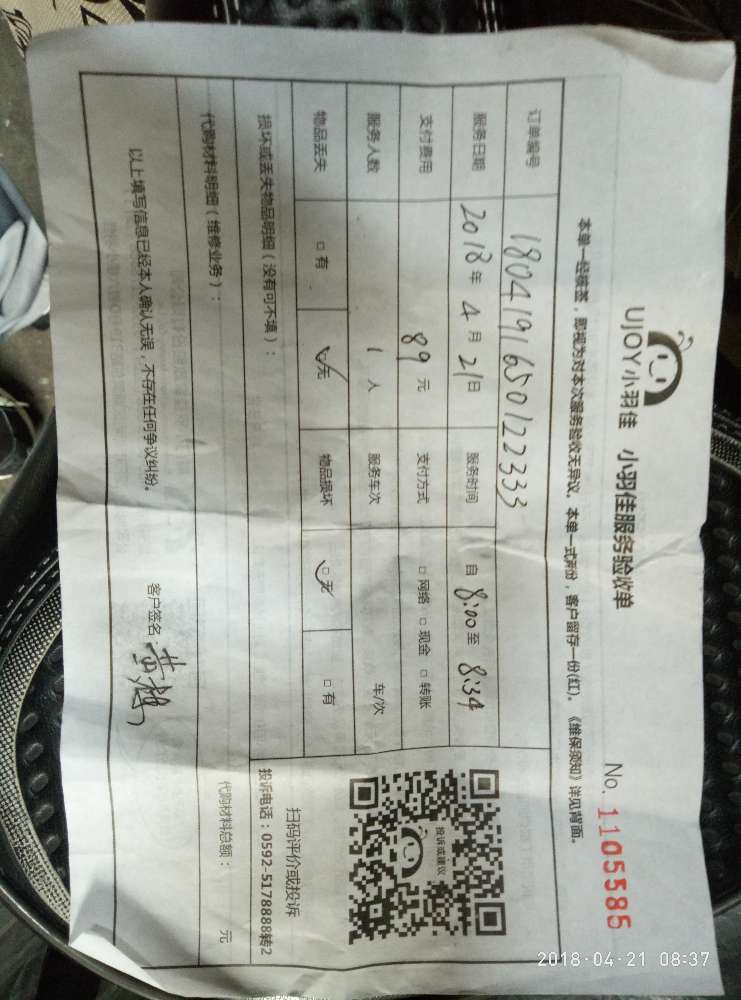 UJOY小羽佳 小羽佳服务验收单
No. 1105585
本单一经核签，即视为对本次服务验收无异议。本单一式两份，客户留存一份(红)。《维保须知》详见背面。
订单编号 180419165012 2333
服务日期 2018年 4月 21日 服务时间 自 8:00 至 8:34
支付费用 89元 支付方式 □网络 □现金 □转账
服务人数 1人 服务车次 车/次
物品丢失 □有 ☑无 物品损坏 ☑无 □有
损坏或丢失物品明细（没有可不填）：
代购材料明细（维修业务）：
代购材料总额： 元
以上填写信息已经本人确认无误，不存在任何争议纠纷。
客户签名：
投诉或建议
扫码评价或投诉
投诉电话：0592-5178888转2
2018-04-21 08:37